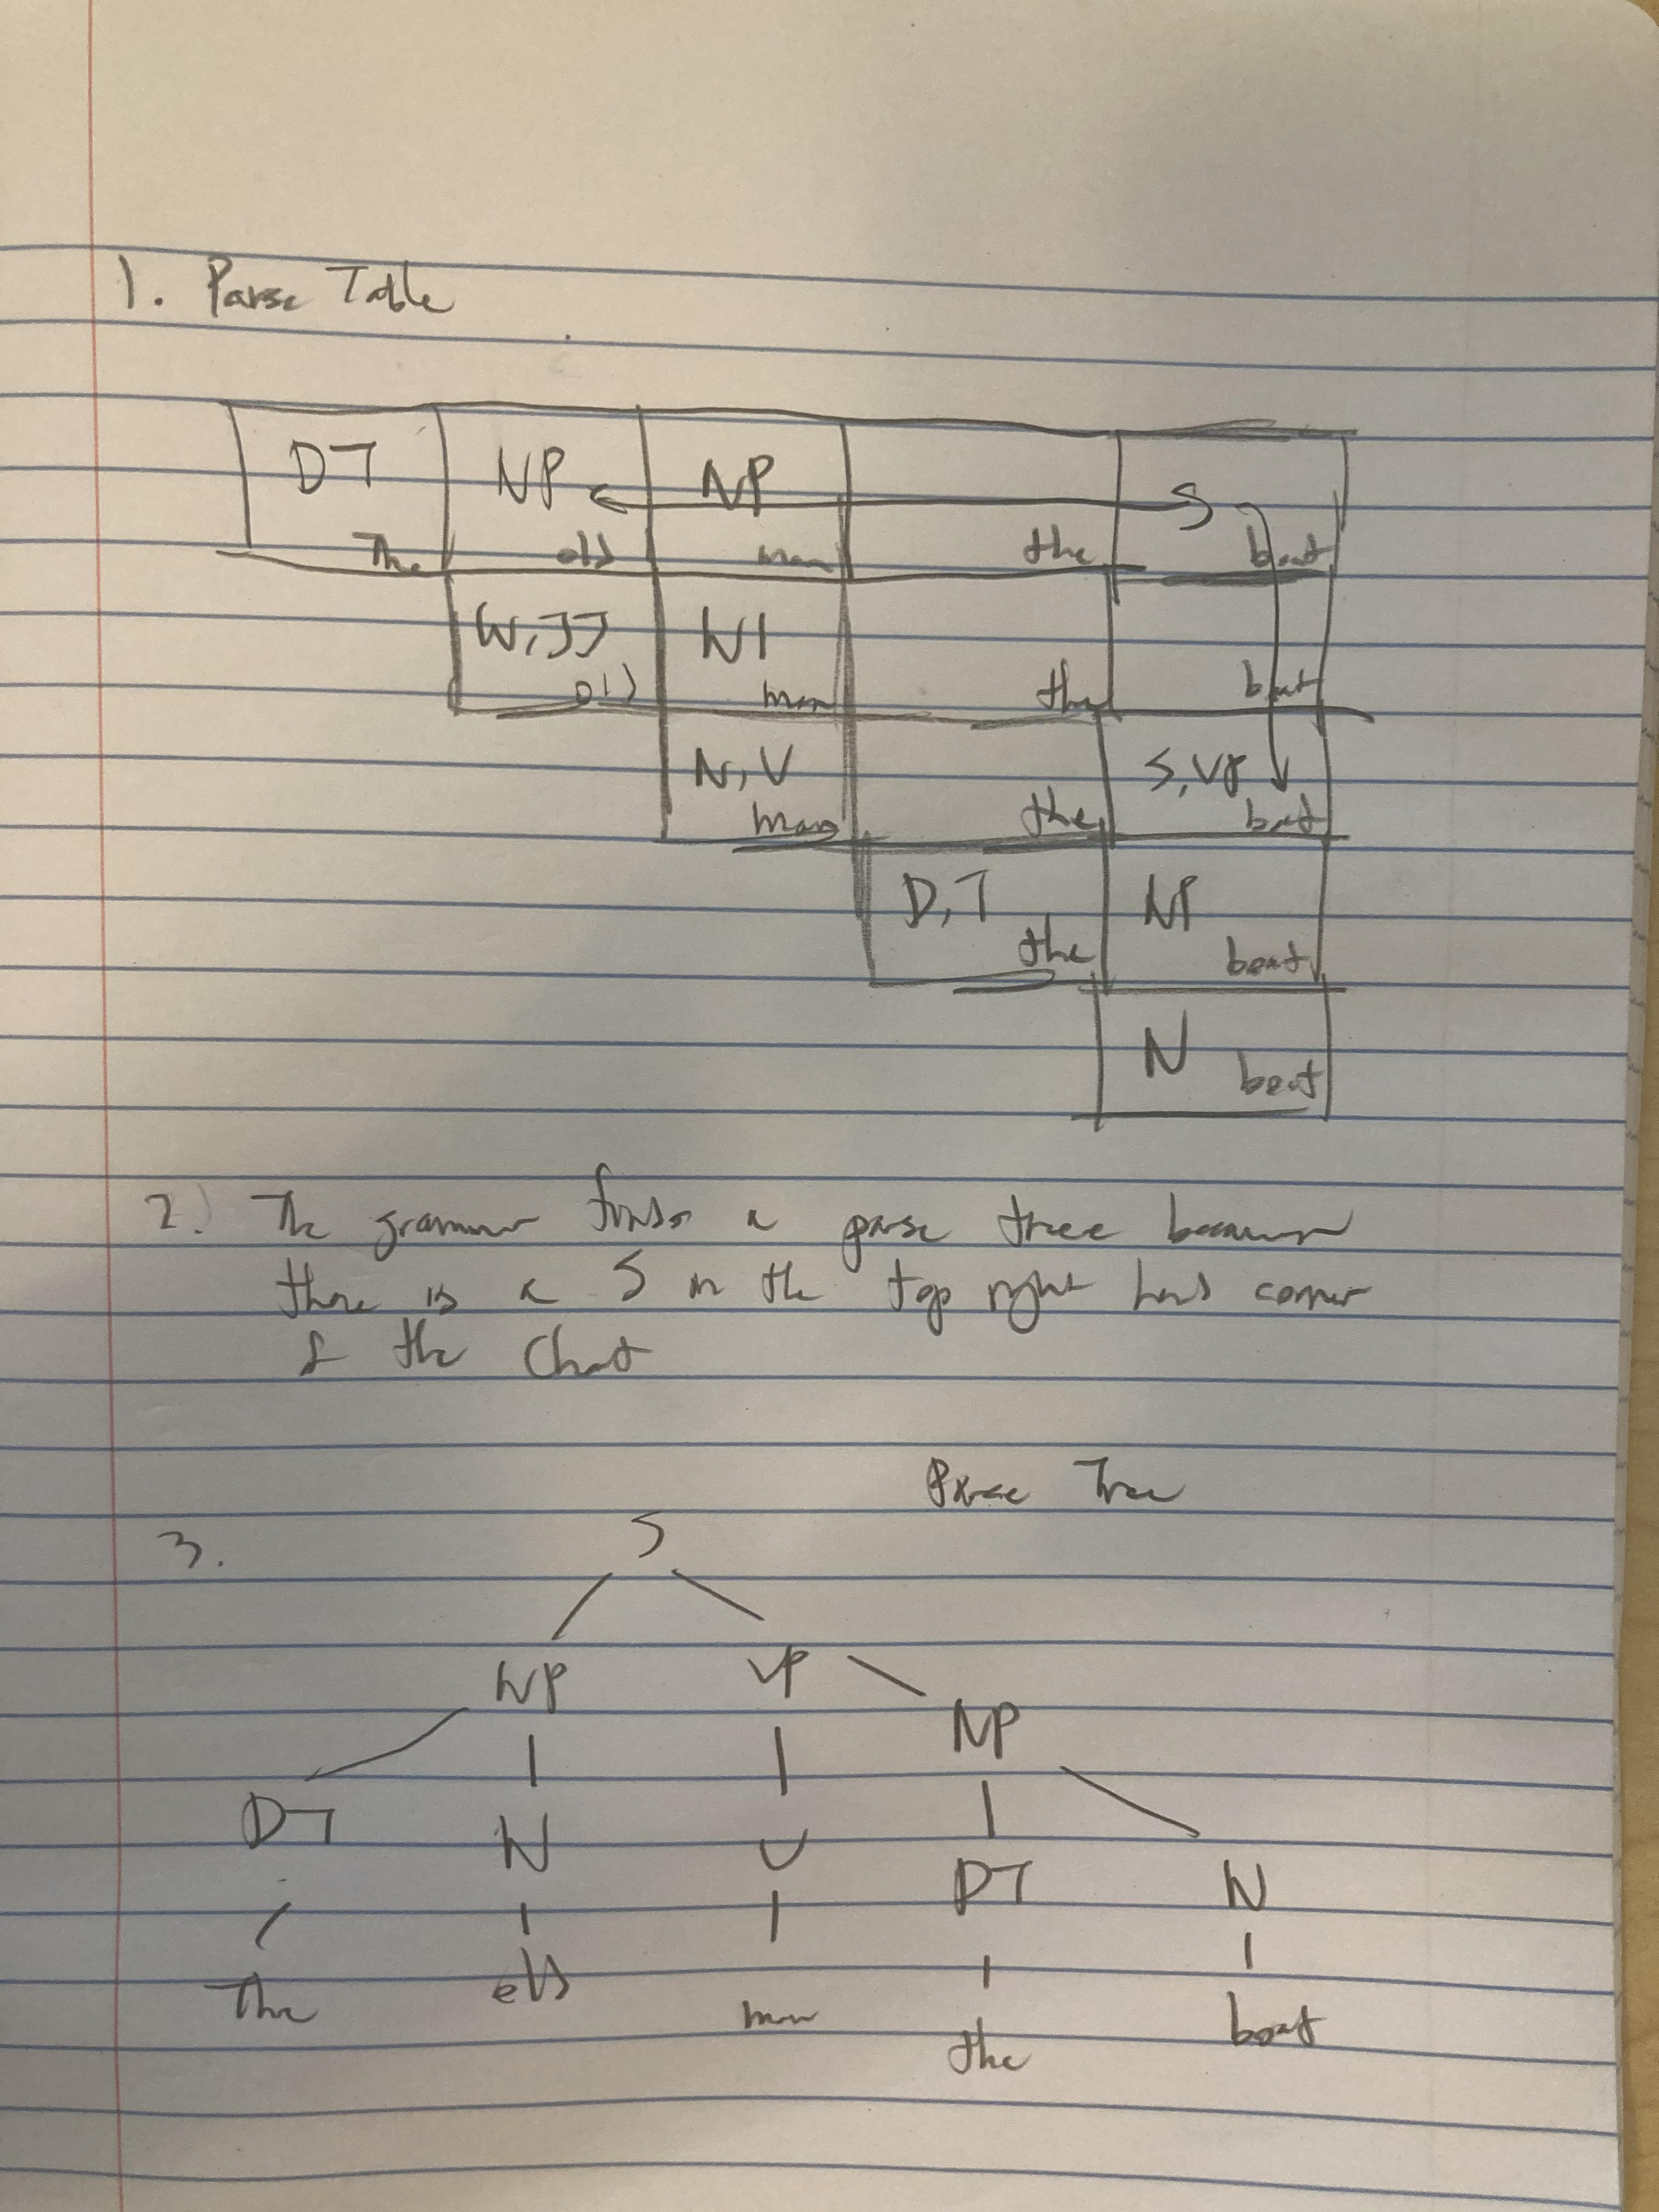 1. Parse Table
DT NP NP S
The old man the boat
N, JJ N1
old man the boat
N, V S, VP
man the boat
D, T NP
the boat
N boat
2. The grammar finds a parse tree because
there is a S in the top right hand corner
of the Chart
Parse Tree
3. S
NP VP
NP
DT N V
DT N
The old
man boat
the